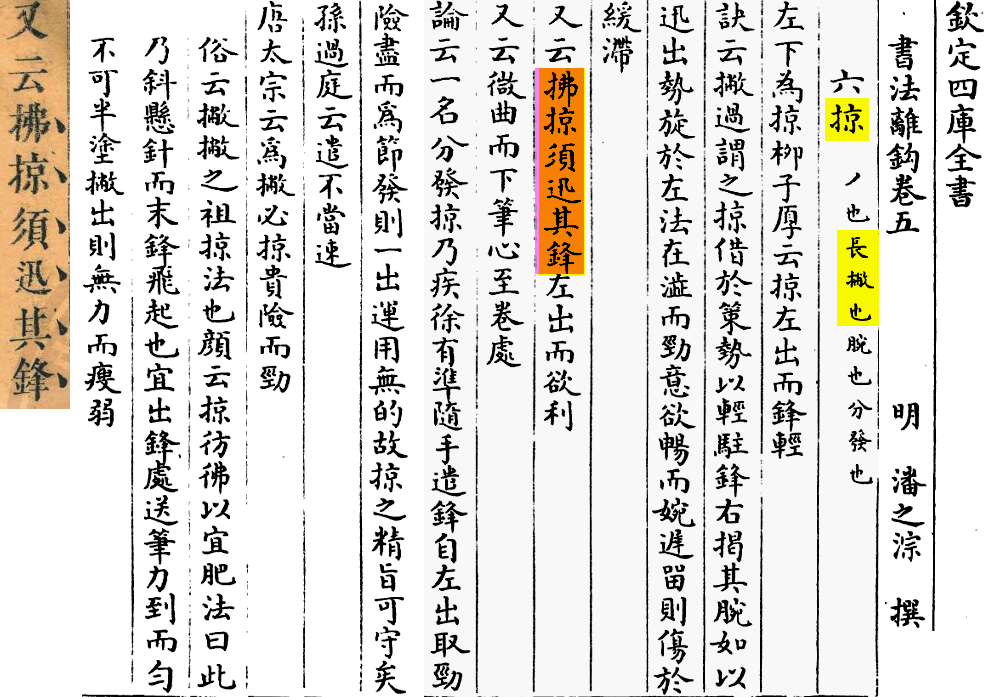 欽定四庫全書
書法離鈎卷五 明 潘之淙 撰
六掠 丿也長撇也腕也分發也
左下為掠柳子厚云掠左出而鋒輕
訣云撇過謂之掠借於策勢以輕駐鋒右揭其腕如以
迅出勢旋於左法在澁而勁意欲暢而婉遲留則傷於
緩滯
又云拂掠須迅其鋒左出而欲利
又云微曲而下筆心至卷處
論云一名分發掠乃疾徐有準隨手遣鋒自左出取勁
險盡而爲節發則一出運用無的故掠之精旨可守矣
孫過庭云遣不當速
唐太宗云爲撇必掠貴險而勁
俗云撇撇之祖掠法也顔云掠彷彿以宜肥法曰此
乃斜懸針而末鋒飛起也宜出鋒處送筆力到而勻
不可半塗撇出則無力而瘦弱
又云拂掠須迅其鋒